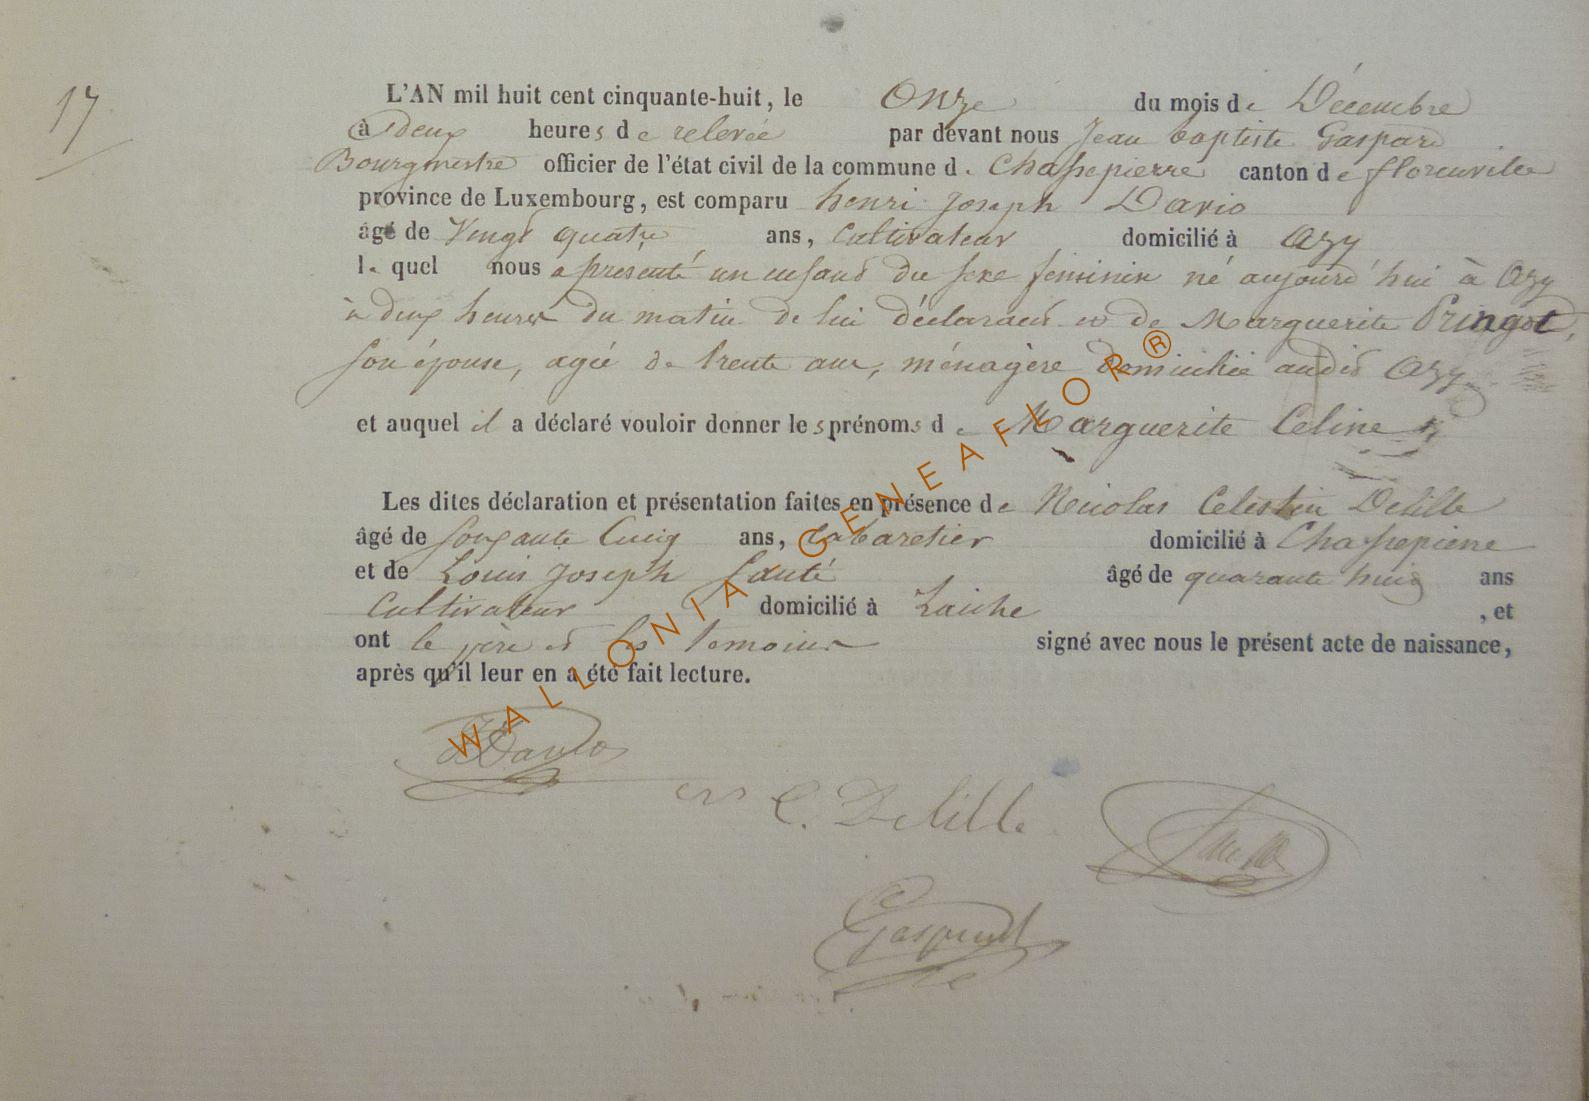 17
L'AN mil huit cent cinquante-huit, le Onze du mois de Décembre
à deux heures de relevée par devant nous Jean baptiste Gaspard
Bourgmestre officier de l'état civil de la commune de Chassepierre canton de florenville
province de Luxembourg, est comparu henri joseph Dario
âgé de Vingt quatre ans, Cultivateur domicilié à Azy
lequel nous a presenté un enfant du sexe féminin né aujourd'hui à Azy
à deux heures du matin de lui déclarant et de Marguerite Pringot,
son épouse, agée de trente ans, ménagère domiciliée audit Azy
et auquel il a déclaré vouloir donner les prénoms de Marguerite Celine
Les dites déclaration et présentation faites en présence de Nicolas Celestin Delille
âgé de soixante Cinq ans, Cabaretier domicilié à Chassepierre
et de Louis joseph âgé de quarante huit ans
Cultivateur domicilié à Laiche, et
ont le père et les temoins signé avec nous le présent acte de naissance,
après qu'il leur en a été fait lecture.
Dario
C. Delille
Gaspard
WALLONIA GENEAFLOR®